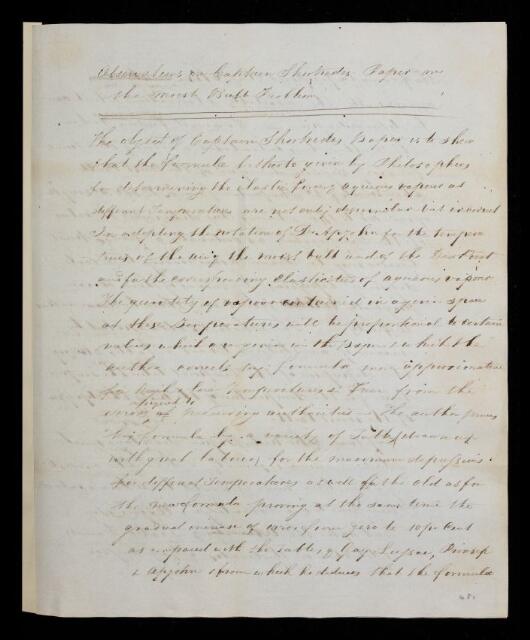 Observations on Captain Shortrede's Paper on
the Moist Bulb Problem
The object of Captain Shortrede's Paper is to shew
that the Formulae hitherto given by Philosophers
for determining the Elastic Force of aqueous vapour at
different Temperatures are not only dissimilar but incorrect
In adopting the notation of Dr Apjohn for the tempera
tures of the air, of the moist bulb and of the Dew Point
and for the corresponding elasticities of aqueous vapour
The quantity of vapour contained in a given space
at these Temperatures will be proportional to certain
values which are given in the paper & which the
author converts into formula
for high & low Temperatures. Free from the
errors of preceding authorities. The author
his formula by a series of Tables drawn up
with great labour, for the maximum depressions
for different Temperatures as well of the old as for
the new formula proving at the same time the
gradual increase of error from zero to 10 per Cent
as compared with the tables of Gay Lussac,
& Apjohn & from which he deduces that the formula